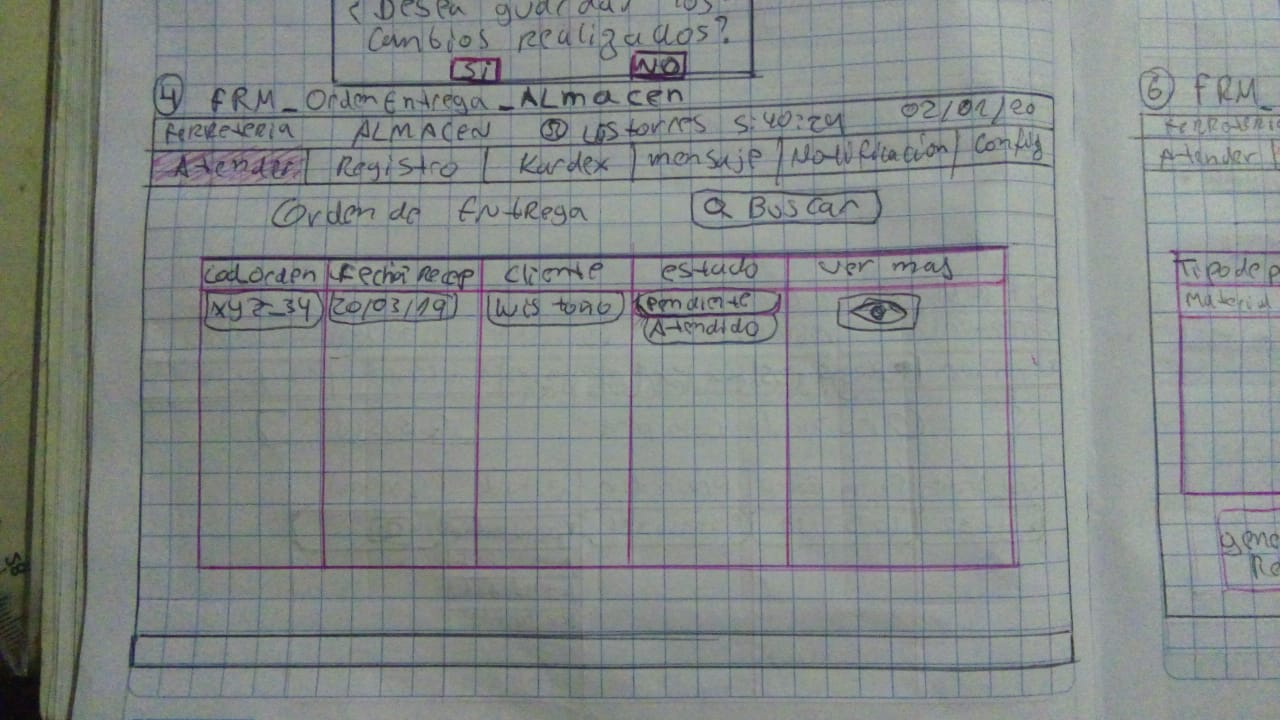 ¿Desea guardar los
Cambios realizados?
Si NO
4 FRM_OrdenEntrega_ALmacen
Ferreteria ALMACEN Los torres 5:40:24 02/01/20
Atender Registro Kardex mensaje Notificacion Config
Orden de Entrega Buscar
CodOrden Fecha Recep cliente estado ver mas
xyz-34 20/03/19 Luis toño Pendiente
Atendido
6 FRM_
Ferreteria
Atender
Tipo de p
Material
gene
Re